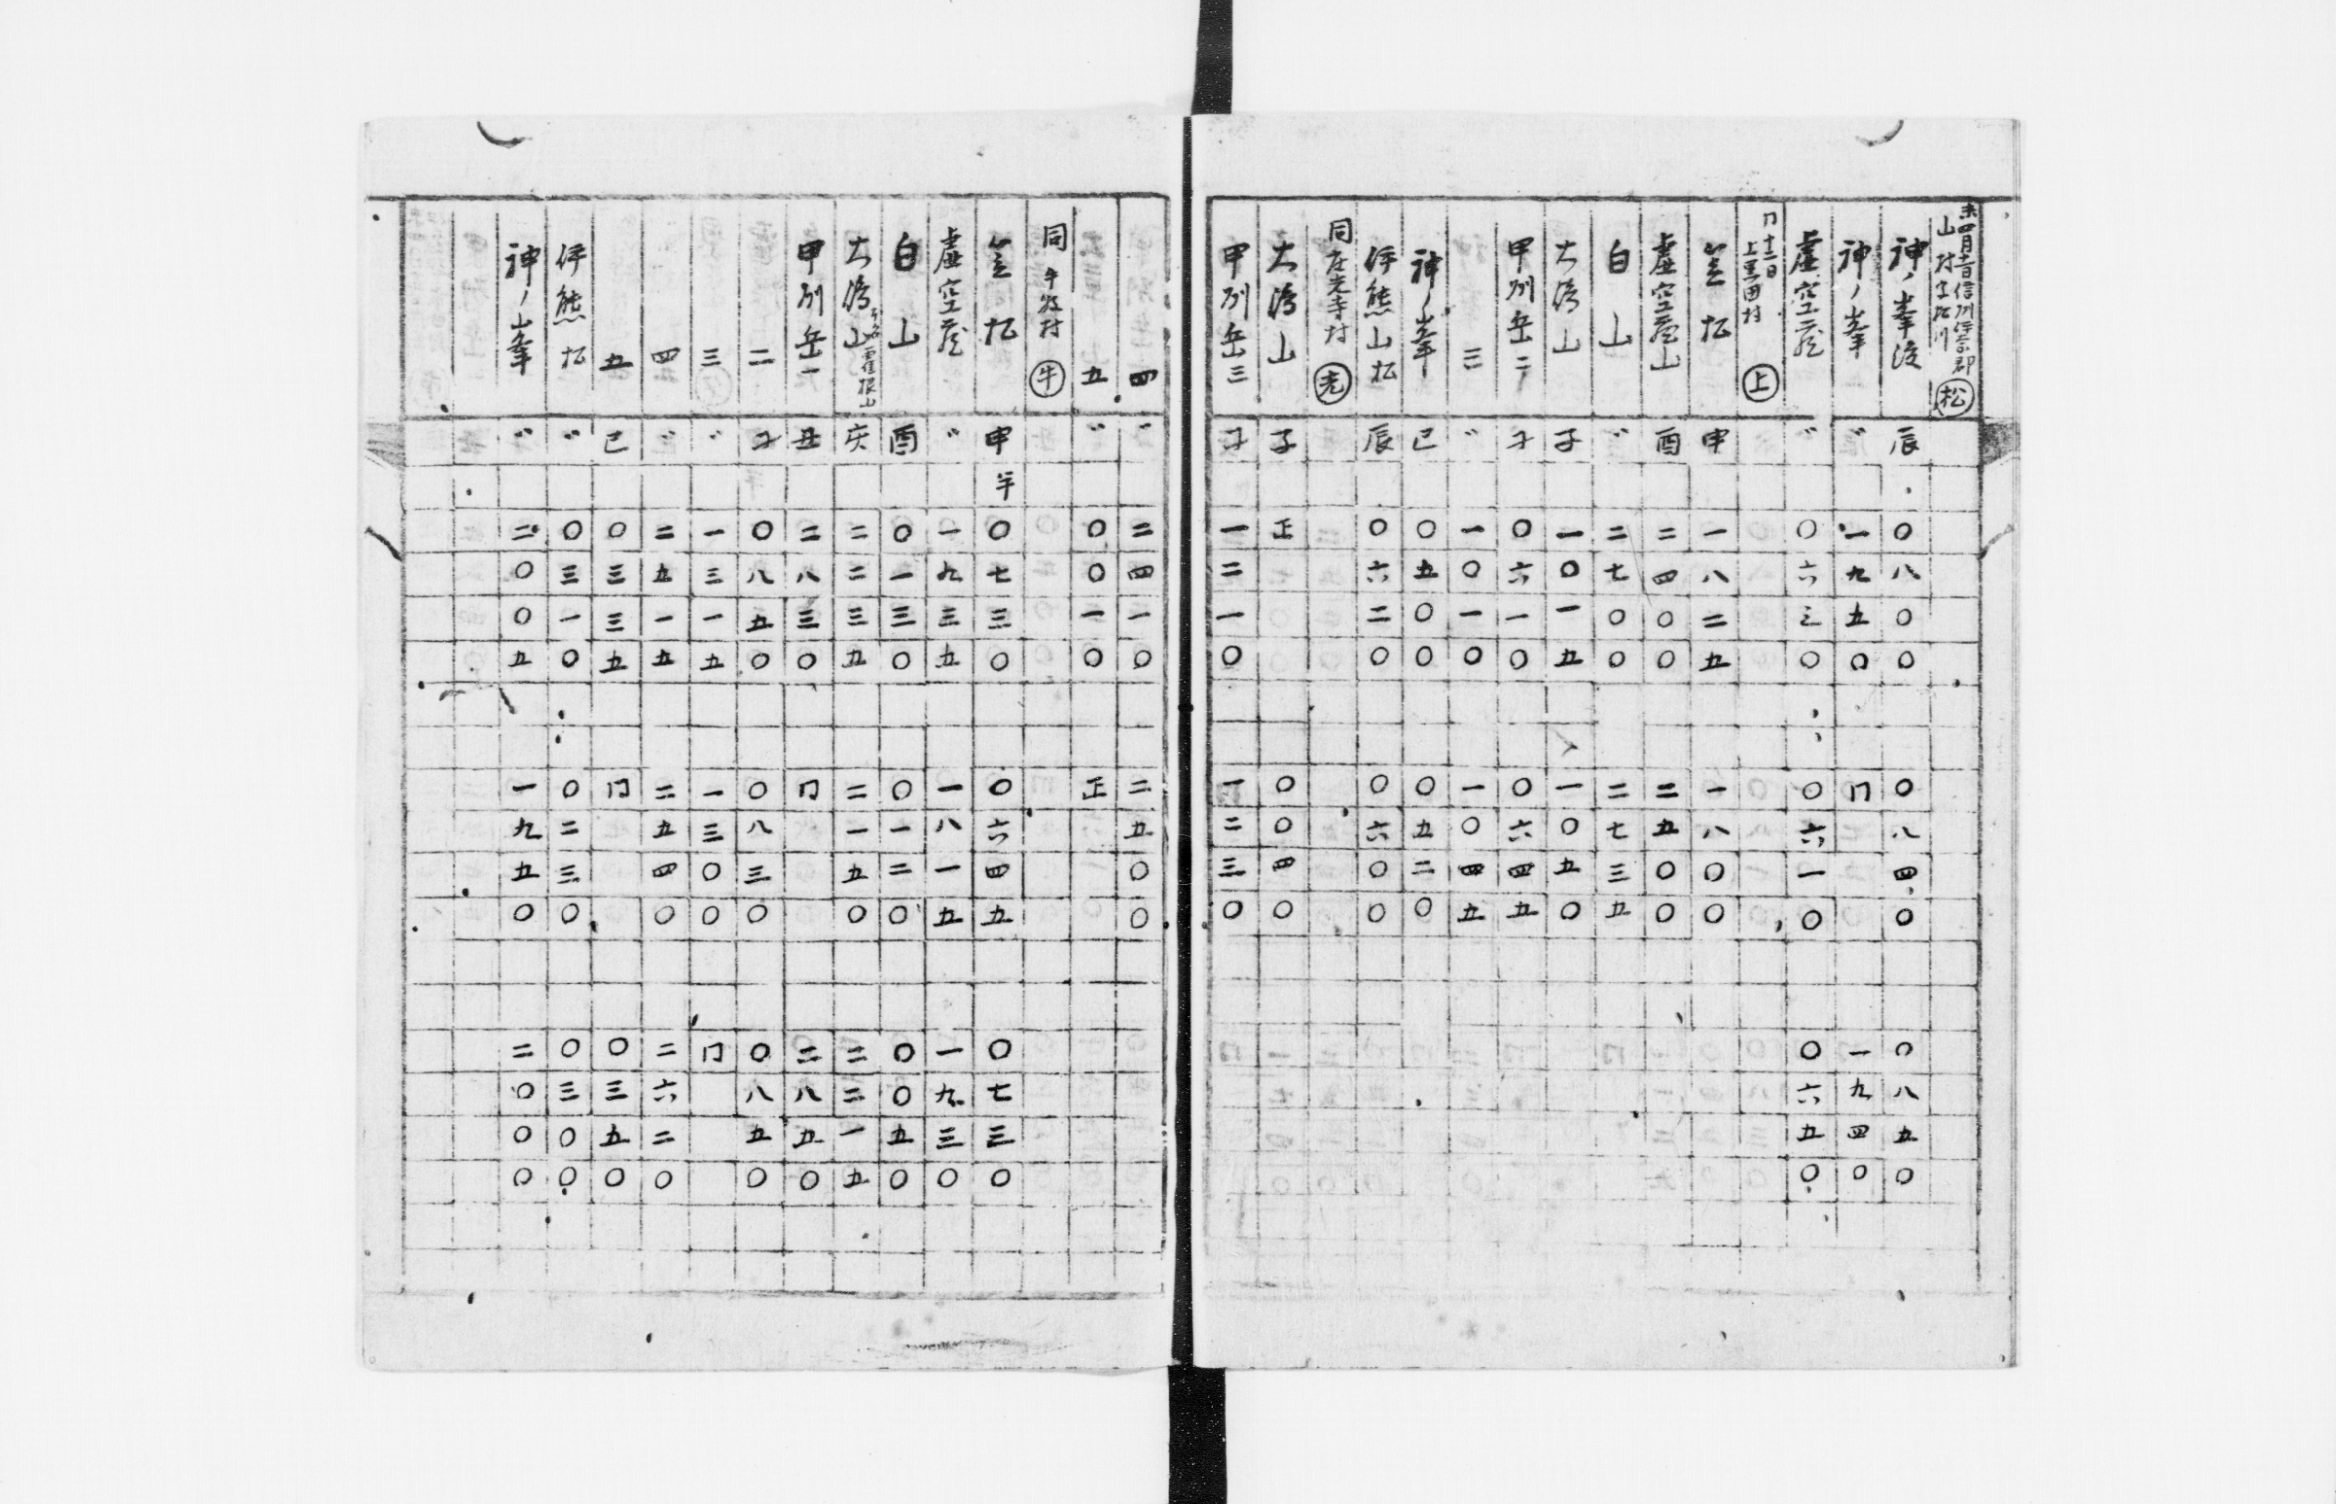 未四月十一日信州伊奈郡
山村字松川 松
神ノ峯渡 辰 〇八〇〇 〇八四〇 〇八五〇
神ノ峯 〃 一九五〇 同 一九四〇
虚空蔵 〃 〇六三〇 〇六一〇 〇六五〇
同十二日
上黒田村 上
笠松 申 一八二五 一八〇〇
虚空蔵山 酉 二四〇〇 二五〇〇
白山 〃 二七〇〇 二七三五
大嶋山 子 一〇一五 一〇五〇
甲州岳二 子 〇六一〇 〇六四五
三 〃 一〇一〇 一〇四五
神ノ峯 巳 〇五〇〇 〇五二〇
伊熊山松 辰 〇六二〇 〇六〇〇
同 座光寺村 光
大嶋山 子 正 〇〇四〇
甲州岳三 子 一二一〇 一二三〇
四 〃 二四一〇 二五〇〇
五 〃 〇〇一〇 正
同 牛牧村 牛
笠松 申 半 〇七三〇 〇六四五 〇七三〇
虚空蔵 〃 一九三五 一八一五 一九三〇
白山 酉 〇一三〇 〇一二〇 〇〇五〇
大嶋山 戌 二二三五 二一五〇 二二一五
甲州岳一 丑 二八三〇 同 二八五〇
二 子 〇八五〇 〇八三〇 〇八五〇
三 〃 一三一五 一三〇〇 同
四 〃 二五一五 二五四〇 二六二〇
五 巳 〇三三五 同 〇三五〇
伊熊松 〃 〇三一〇 〇二三〇 〇三〇〇
神ノ峯 〃 二〇〇五 一九五〇 二〇〇〇